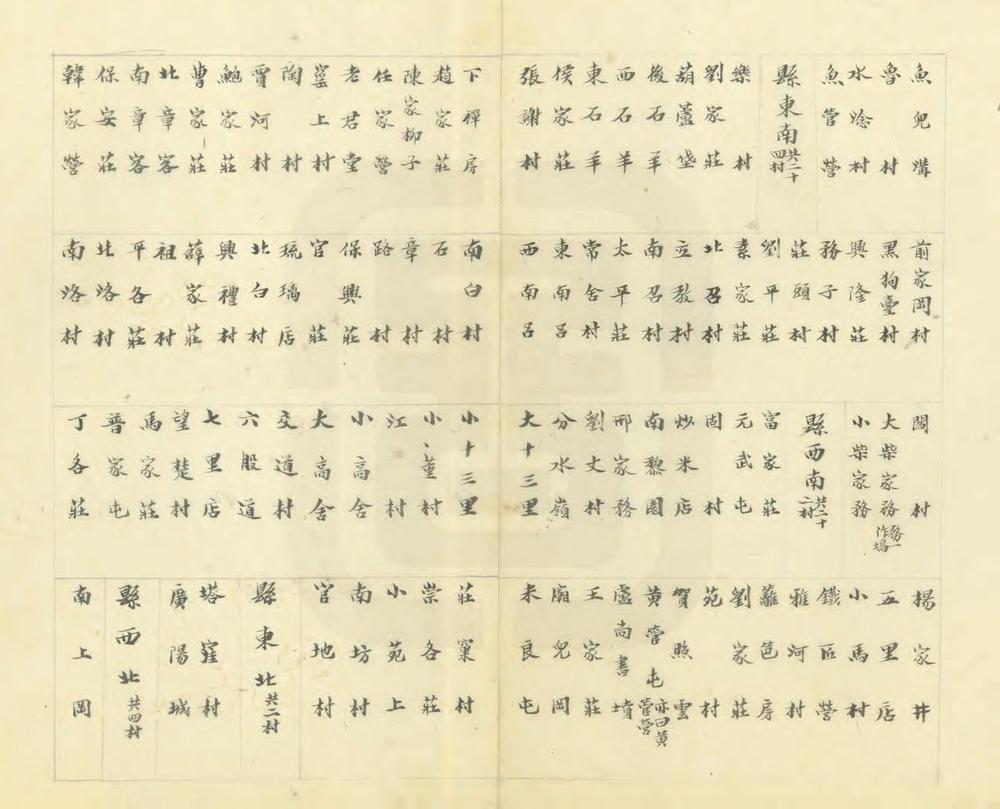 魚兒溝
魯村
水淦村
魚管營
縣東南共二十四村
樂村
劉家莊
葫蘆垡
後石羊
西石羊
東石羊
侯家莊
張謝村
前家岡村
黑狗臺村
興隆莊
務子村
莊頭村
劉平莊
素家莊
北召村
立教村
南召村
太平莊
常舍村
東南呂
西南呂
閻村
大柴家務
小柴家務
縣西南
富家莊
元武屯
固村
炒米店
南黎園
邢家務
劉丈村
分水嶺
大十三里
楊家井
五里店
小馬村
鐵匠營
雅河村
蘿筐房
劉家莊
苑村
賀照雲
黃管屯亦曰黃管營
盧尚書墳
王家莊
廟兒岡
未良屯
下禪房
趙家莊
陳家柳子
任家營
老君堂
窰上村
陶村
賈河村
鮑家莊
曹家莊
北章客
南章客
保安莊
韓家營
南白村
石村
章村
路村
保興莊
官莊
琉璃店
北白村
興禮村
薛家莊
祖村
平各莊
北洛村
南洛村
小十三里
小董村
江村
小高舍
大高舍
交道村
六股道
七里店
望楚村
馬家莊
普家屯
丁各莊
莊窠村
崇各莊
小苑上
南坊村
官地村
縣東北共二村
塔窪村
廣陽城
縣西北共四村
南上岡